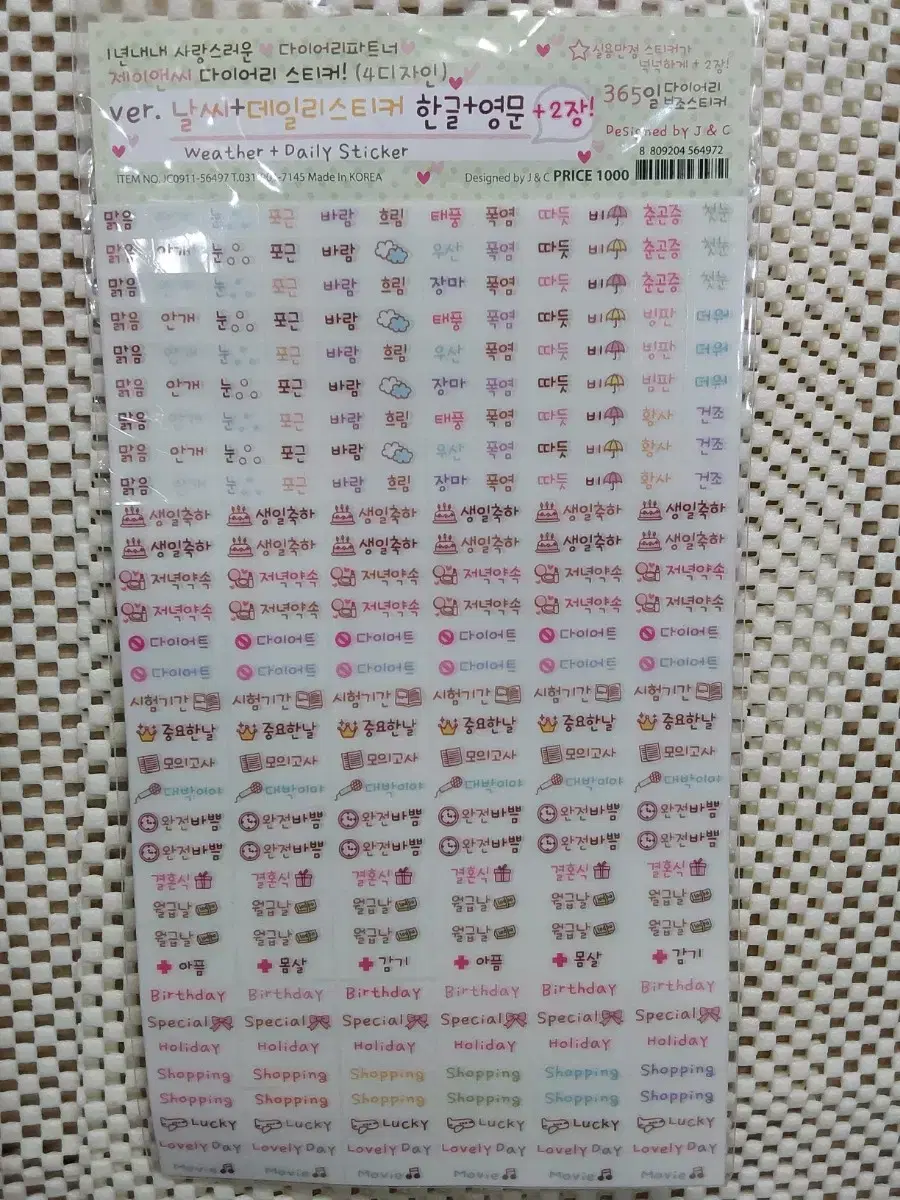 1년내내 사랑스러운 다이어리파트너
제이앤씨 다이어리 스티커! (4디자인)
실용만점 스티커가
넉넉하게 + 2장!
ver. 날씨+데일리스티커 한글+영문 +2장!
365일 다이어리
보조스티커
Weather + Daily Sticker
Designed by J & C
8 809204 564972
ITEM NO. JC0911-56497 T.031 -7145 Made In KOREA
Designed by J & C PRICE 1000
맑음 눈 포근 바람 흐림 태풍 폭염 따듯 비 춘곤증 첫눈
맑음 안개 눈 포근 바람 우산 폭염 따듯 비 춘곤증 첫눈
맑음 안개 눈 포근 바람 흐림 장마 폭염 따듯 비 춘곤증 첫눈
맑음 안개 눈 포근 바람 태풍 폭염 따듯 비 빙판 더워
맑음 안개 눈 포근 바람 흐림 우산 폭염 따듯 비 빙판 더워
맑음 안개 눈 포근 바람 장마 폭염 따듯 비 빙판 더워
맑음 안개 눈 포근 바람 흐림 태풍 폭염 따듯 비 황사 건조
맑음 안개 눈 포근 바람 우산 폭염 따듯 비 황사 건조
맑음 안개 눈 포근 바람 흐림 장마 폭염 따듯 비 황사 건조
생일축하 생일축하 생일축하 생일축하 생일축하 생일축하
생일축하 생일축하 생일축하 생일축하 생일축하 생일축하
저녁약속 저녁약속 저녁약속 저녁약속 저녁약속 저녁약속
저녁약속 저녁약속 저녁약속 저녁약속 저녁약속 저녁약속
다이어트 다이어트 다이어트 다이어트 다이어트 다이어트
다이어트 다이어트 다이어트 다이어트 다이어트 다이어트
시험기간 시험기간 시험기간 시험기간 시험기간 시험기간
중요한날 중요한날 중요한날 중요한날 중요한날 중요한날
모의고사 모의고사 모의고사 모의고사 모의고사 모의고사
대박이야 대박이야 대박이야 대박이야 대박이야 대박이야
완전바쁨 완전바쁨 완전바쁨 완전바쁨 완전바쁨 완전바쁨
완전바쁨 완전바쁨 완전바쁨 완전바쁨 완전바쁨 완전바쁨
결혼식 결혼식 결혼식 결혼식 결혼식 결혼식
월급날 월급날 월급날 월급날 월급날 월급날
월급날 월급날 월급날 월급날 월급날 월급날
아픔 몸살 감기 아픔 몸살 감기
Birthday Birthday Birthday Birthday Birthday Birthday
Special Special Special Special Special Special
Holiday Holiday Holiday Holiday Holiday Holiday
Shopping Shopping Shopping Shopping Shopping Shopping
Shopping Shopping Shopping Shopping Shopping Shopping
Lucky Lucky Lucky Lucky Lucky Lucky
Lovely Day Lovely Day Lovely Day Lovely Day Lovely Day Lovely Day
Movie Movie Movie Movie Movie Movie